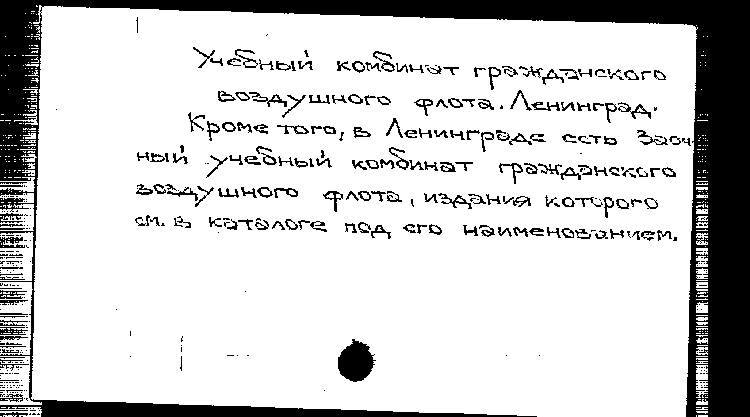 Учебный комбинат гражданского
воздушного флота. Ленинград.
Кроме того, в Ленинграде есть Заоч-
ный учебный комбинат гражданского
воздушного флота, издания которого
см. в каталоге под его наименованием.